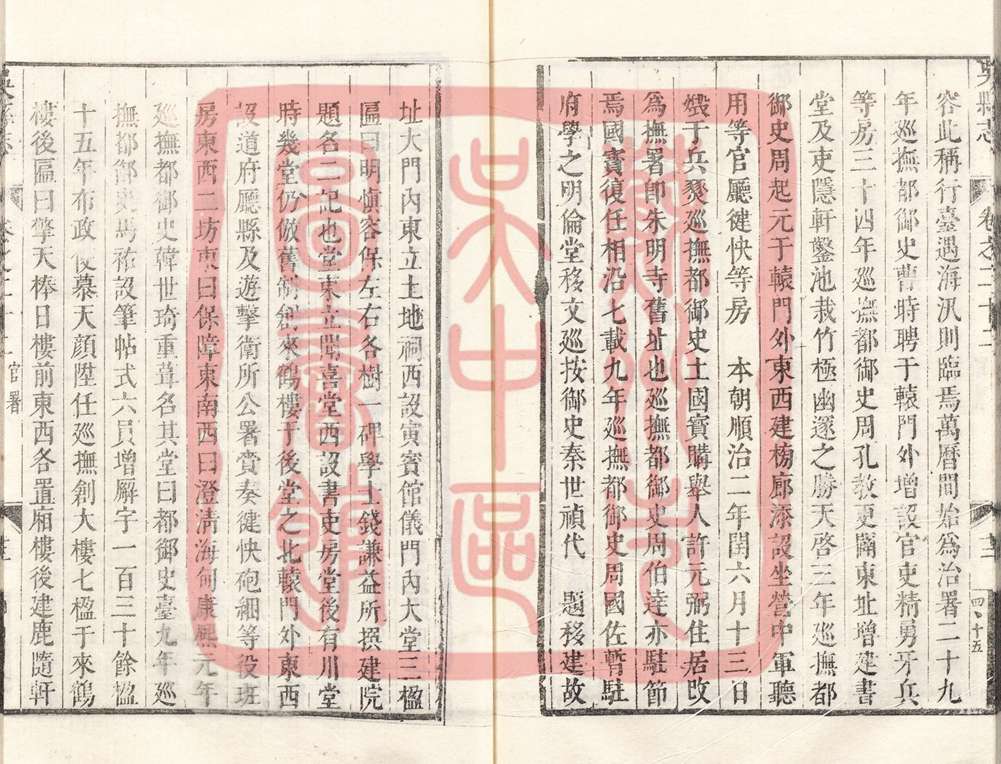 吳縣志
容此稱行臺遇海汛則臨焉萬曆間始爲治署二十九
年巡撫都御史曹時聘于轅門外增設官吏精勇牙兵
等房三十四年巡撫都御史周孔教更闢東址增建書
堂及吏隱軒鑿池栽竹極幽邃之勝天啓三年巡撫都
御史周起元于轅門外東西建榜廊添設坐營中軍聽
用等官廳健快等房 本朝順治二年閏六月十三日
燬于兵燹巡撫都御史土國寶購舉人許元弼住居改
爲撫署卽朱明寺舊址也巡撫都御史周伯達亦駐節
焉國寶復任相沿七載九年巡撫都御史周國佐暫駐
府學之明倫堂移文巡按御史秦世禎代 題移建故
址大門內東立土地祠西設寅賓館儀門內大堂三楹
匾曰明愼容保左右各樹一碑學士錢謙益所撰建院
題名二記也堂東立聞喜堂西設書吏房堂後有川堂
時幾堂仍倣舊制創來鶴樓于後堂之北轅門外東西
設道府廳縣及遊擊衛所公署賫奏健快砲細等役班
房東西二坊東曰保障東南西曰澄淸海甸康熙元年
巡撫都御史韓世琦重葺名其堂曰都御史臺九年巡
撫都御史馬祐設筆帖式六員增廨宇一百三十餘楹
十五年布政使慕天顏陞任巡撫創大樓七楹于來鶴
樓後匾曰擎天捧日樓前東西各置廂樓樓後建鹿隨軒
官署
四・十五